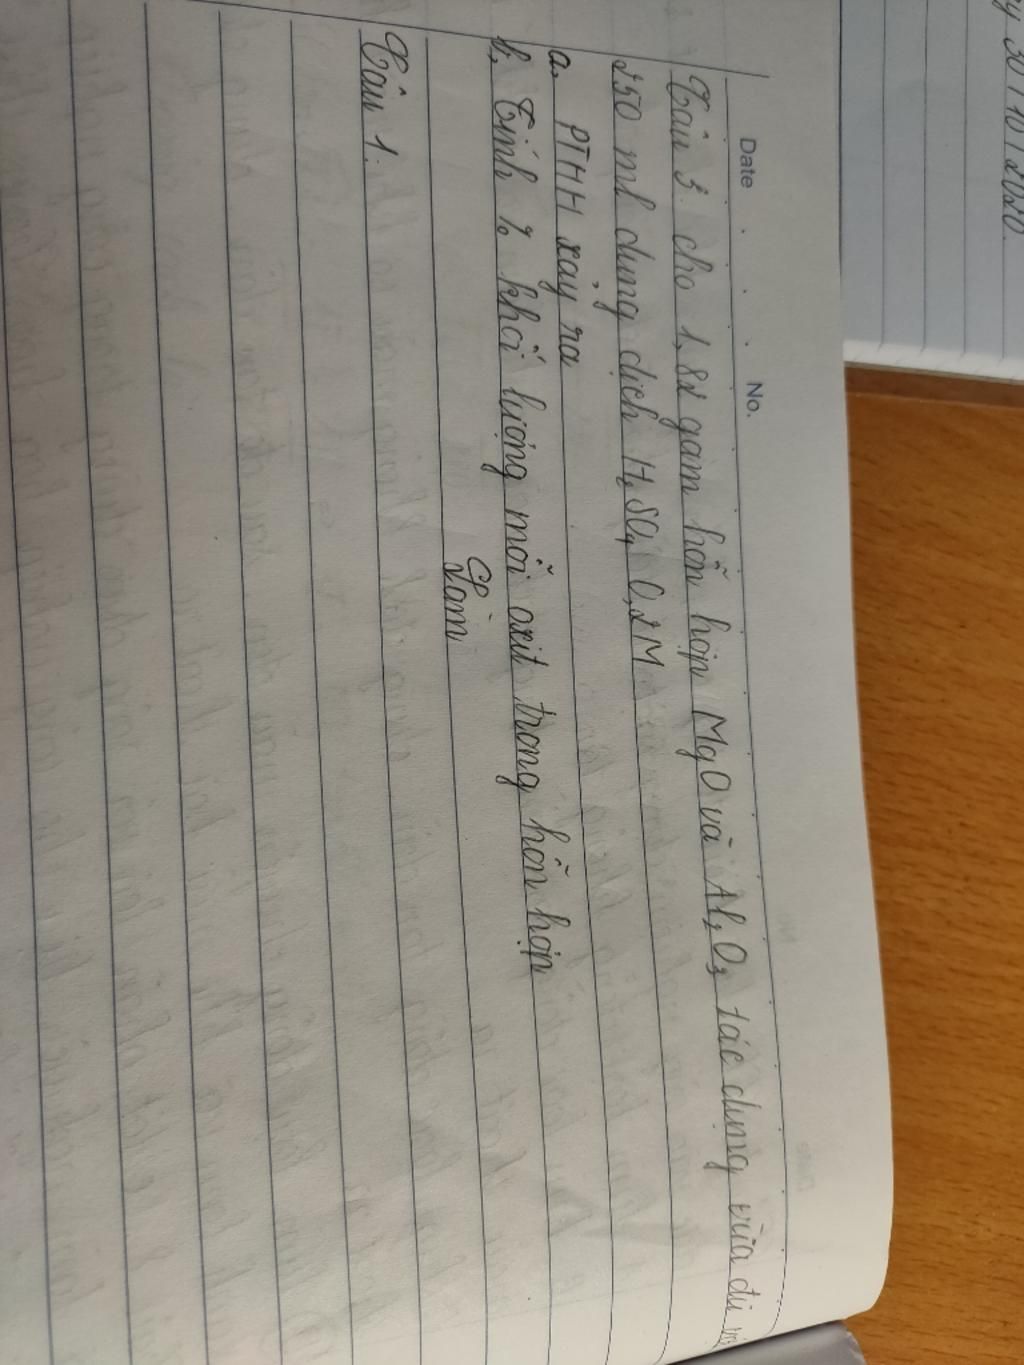 30/10/2020.
Date No.
Câu 3. cho 1,82 gam hỗn hợp MgO và Al2O3 tác dụng vừa đủ với
250 ml dung dịch H2SO4 0,2M
a, PTHH xảy ra
b, Tính % khối lượng mỗi oxit trong hỗn hợp
Làm
Câu 1.